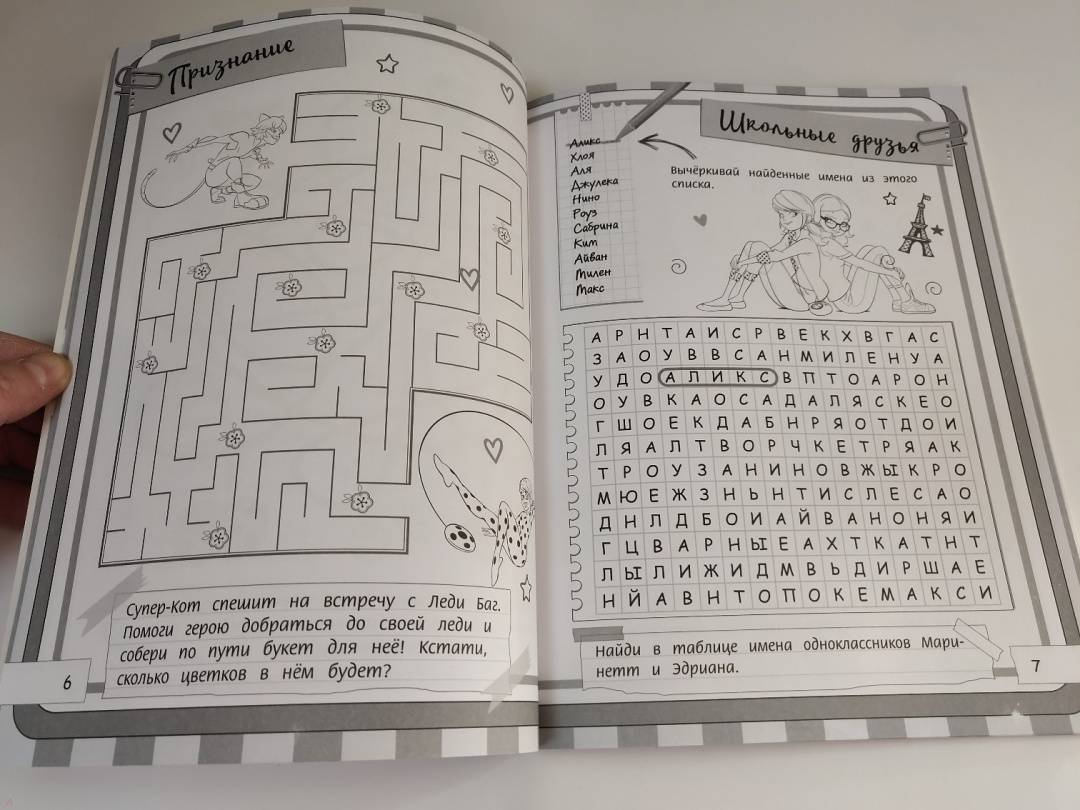 Признание
Супер-Кот спешит на встречу с Леди Баг.
Помоги герою добраться до своей леди и
собери по пути букет для неё! Кстати,
сколько цветков в нём будет?
6
Школьные друзья
Аликс
Хлоя
Аля
Джулека
Нино
Роуз
Сабрина
Ким
Айван
Милен
Макс
Вычёркивай найденные имена из этого
списка.
А Р Н Т А И С Р В Е К Х В Г А С
З А О У В В С А Н М И Л Е Н У А
У Д О А Л И К С В П Т О А Р О Н
О У В К А О С А Д А Л Я С К Е О
Г Ш О Е К Д А Б Н Р Я О Т Д О И
Л Я А Л Т В О Р Ч К Е Т Р Я А К
Т Р О У З А Н И Н О В Ж Ы К Р О
М Ю Е Ж З Н Ь Н Т И С Л Е С А О
Д Н Л Д Б О И А Й В А Н О Н Я И
Г Ц В А Р Н Ы Е А Х Т К А Т Н Т
Л Ы Л И Ж И Д М В Ь Д И Р Ш А Е
Н Й А В Н Т О П О К Е М А К С И
Найди в таблице имена одноклассников Мари-
нетт и Эдриана.
7